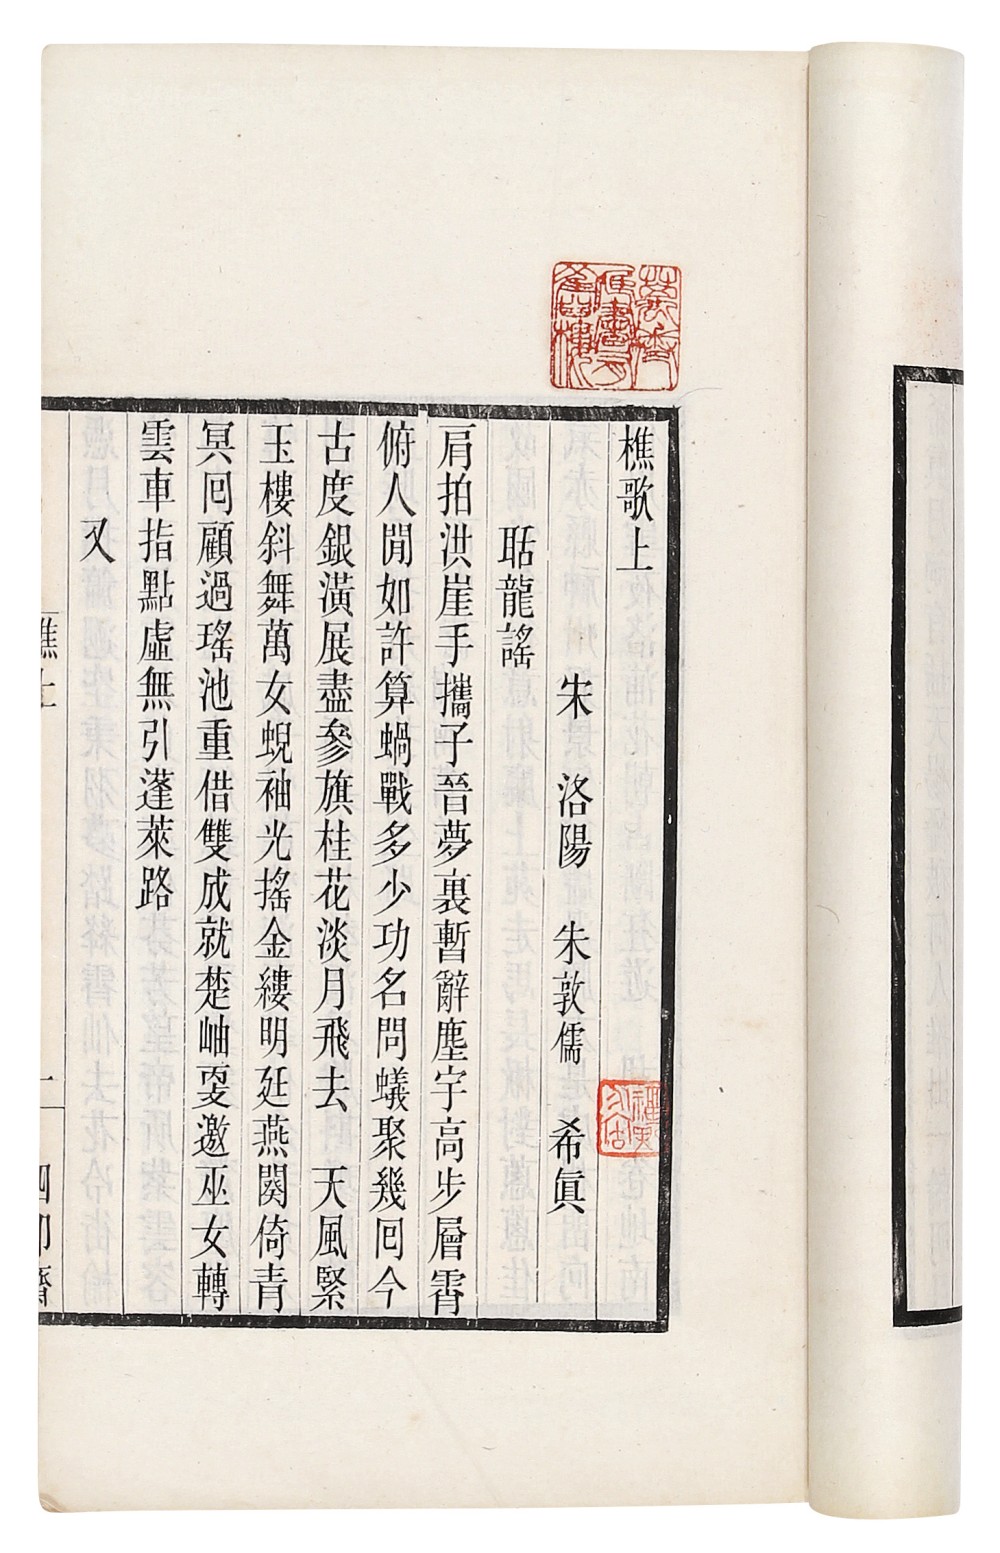 樵歌上
朱　洛陽　朱敦儒　希眞
聒龍謠
肩拍洪崖手攜子晉夢裏暫辭塵宇高步層霄
俯人閒如許算蝸戰多少功名問蟻聚幾囘今
古度銀潢展盡參旗桂花淡月飛去　天風緊
玉樓斜舞萬女蜺袖光搖金縷明廷燕闋倚青
冥囘顧過瑤池重借雙成就楚岫更邀巫女轉
雲車指點虛無引蓬萊路
又
樵上
一
四印齋